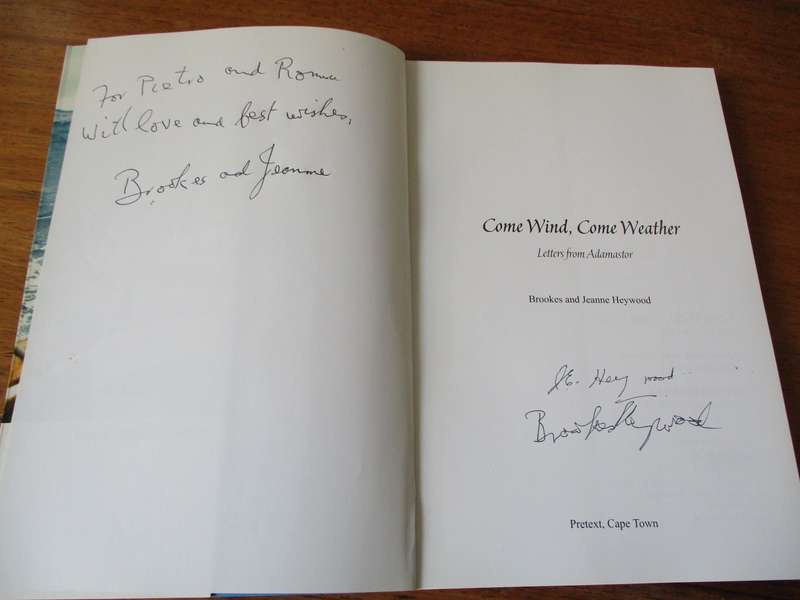 For Pietro and Roma
With love and best wishes,
Brookes and Jeanne
Come Wind, Come Weather
Letters from Adamastor
Brookes and Jeanne Heywood
J.E. Heywood
Brookes Heywood
Pretext, Cape Town